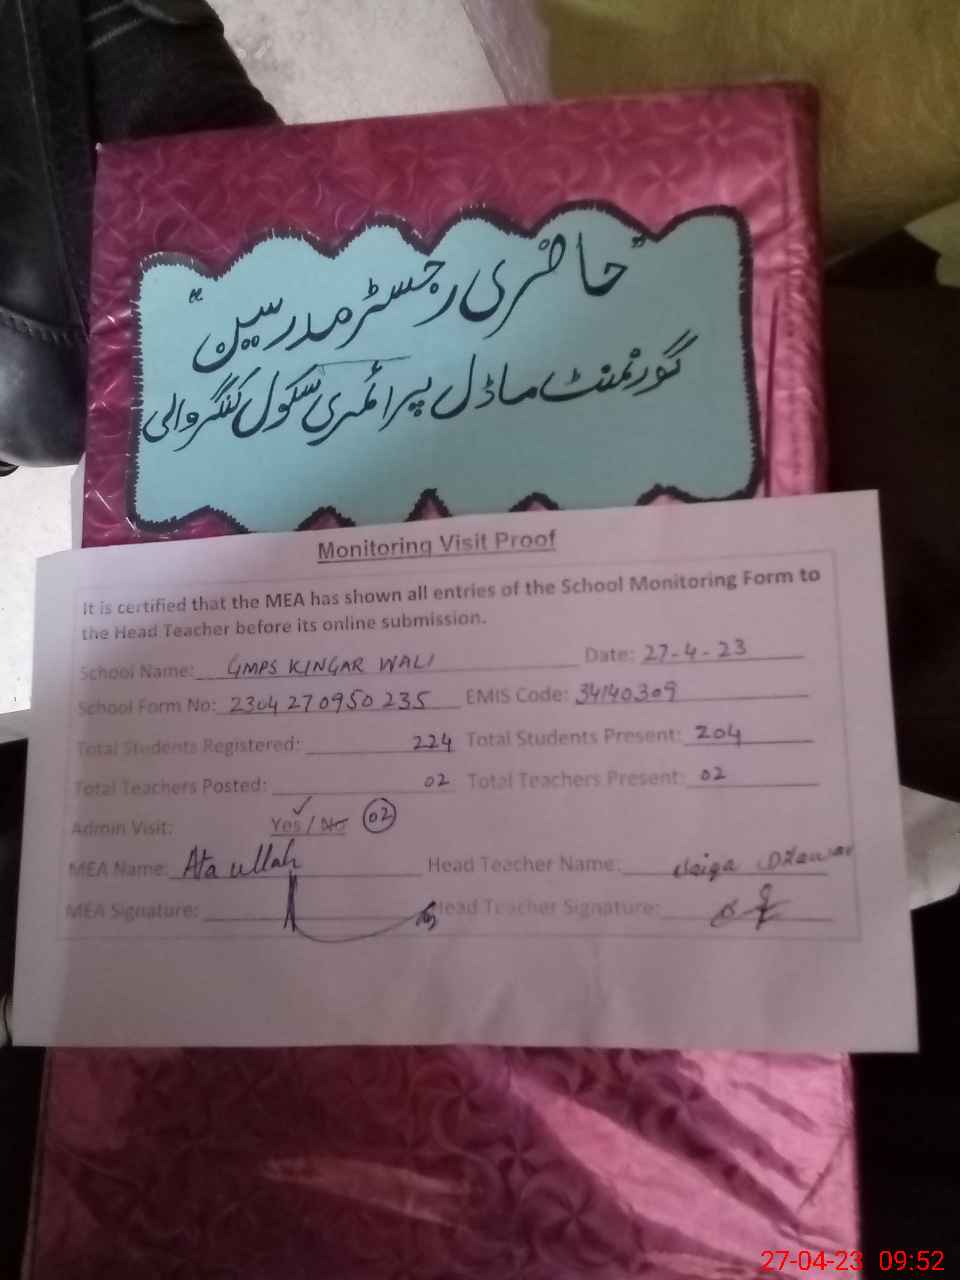 "حاضری رجسٹر مدرسین"
گورنمنٹ ماڈل پرائمری سکول کنگر والی
Monitoring Visit Proof
It is certified that the MEA has shown all entries of the School Monitoring Form to
the Head Teacher before its online submission.
School Name: GMPS KINGAR WALI Date: 27-4-23
School Form No: 2304270950235 EMIS Code: 34140309
Total Students Registered: 224 Total Students Present: 204
Total Teachers Posted: 02 Total Teachers Present: 02
Admin Visit: Yes / No 02
MEA Name: Ata ullah Head Teacher Name:
MEA Signature: Head Teacher Signature:
27-04-23 09:52